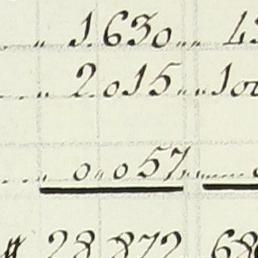 1.630 „
2.015 „
„ 0.057 „
# 28.872 68